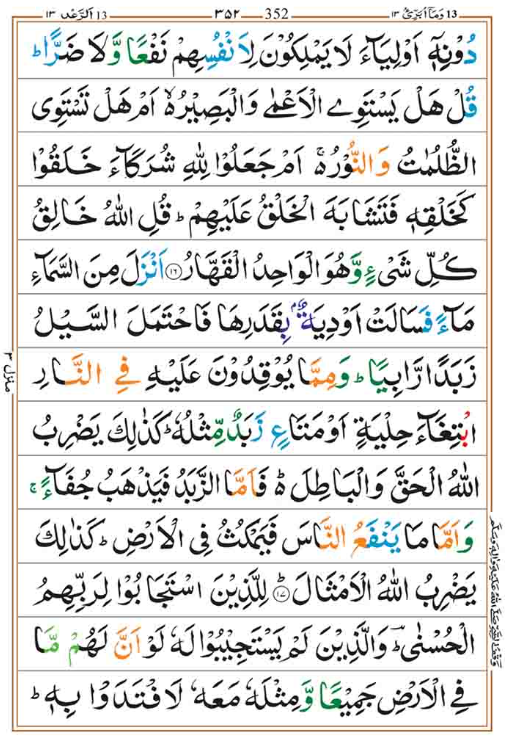 13 اَلرَّعْد ١٣ ٣٥٢ 352 13 وَمَآ اُبَرِّئُ ١٣
دُوْنِهٖۤ اَوْلِيَآءَ لَا يَمْلِكُوْنَ لِاَنْفُسِهِمْ نَفْعًا وَّلَا ضَرًّاؕ
قُلْ هَلْ يَسْتَوِي الْاَعْمٰى وَالْبَصِيْرُ۬ اَمْ هَلْ تَسْتَوِى
الظُّلُمٰتُ وَالنُّوْرُ۬ۚ اَمْ جَعَلُوْا لِلّٰهِ شُرَكَآءَ خَلَقُوْا
كَخَلْقِهٖ فَتَشَابَهَ الْخَلْقُ عَلَيْهِمْؕ قُلِ اللّٰهُ خَالِقُ
كُلِّ شَيْءٍ وَّهُوَ الْوَاحِدُ الْقَهَّارُ۝۱۶ اَنْزَلَ مِنَ السَّمَآءِ
مَآءً فَسَالَتْ اَوْدِيَةٌۢ بِقَدَرِهَا فَاحْتَمَلَ السَّيْلُ
زَبَدًا رَّابِيًاؕ وَمِمَّا يُوْقِدُوْنَ عَلَيْهِ فِي النَّارِ
ابْتِغَآءَ حِلْيَةٍ اَوْ مَتَاعٍ زَبَدٌ مِّثْلُهٗؕ كَذٰلِكَ يَضْرِبُ
اللّٰهُ الْحَقَّ وَالْبَاطِلَ۬ؕ فَاَمَّا الزَّبَدُ فَيَذْهَبُ جُفَآءًۚ
وَاَمَّا مَا يَنْفَعُ النَّاسَ فَيَمْكُثُ فِي الْاَرْضِؕ كَذٰلِكَ
يَضْرِبُ اللّٰهُ الْاَمْثَالَؕ۝۱۷ لِلَّذِيْنَ اسْتَجَابُوْا لِرَبِّهِمُ
الْحُسْنٰىؔؕ وَالَّذِيْنَ لَمْ يَسْتَجِيْبُوْا لَهٗ لَوْ اَنَّ لَهُمْ مَّا
فِي الْاَرْضِ جَمِيْعًا وَّمِثْلَهٗ مَعَهٗ لَافْتَدَوْا بِهٖؕ
منزل ٣